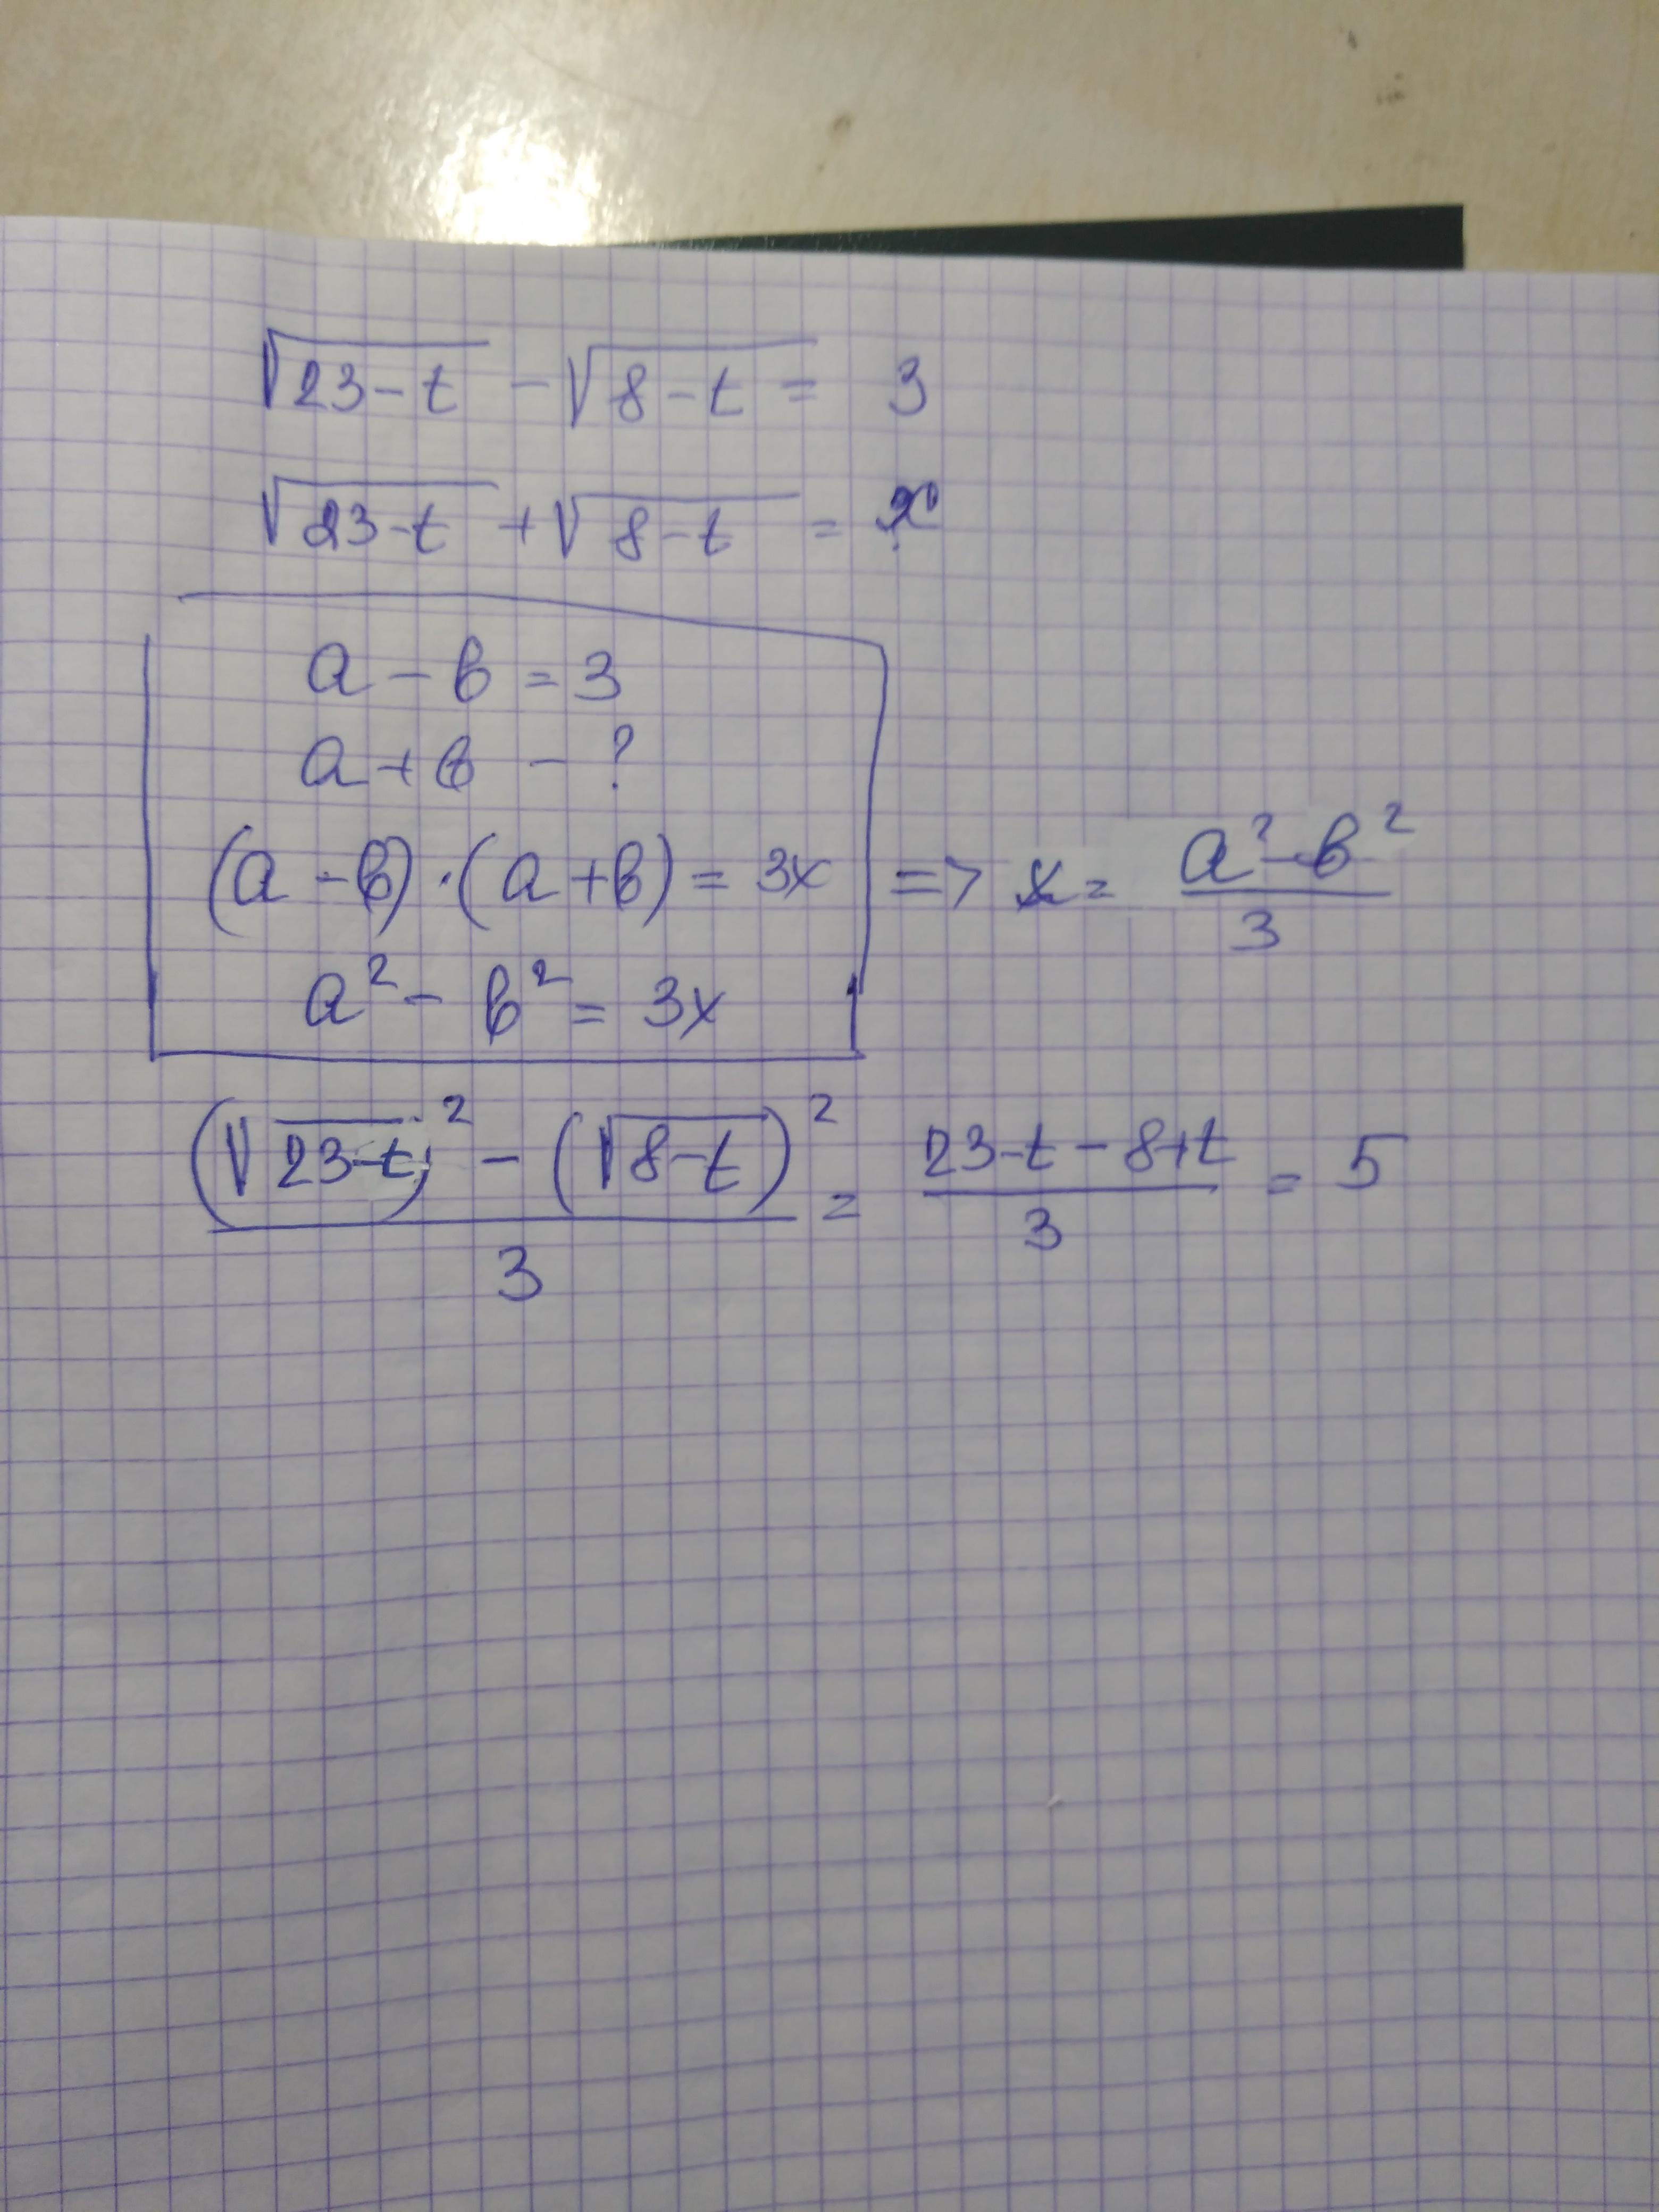 √23-t - √8-t = 3
√23-t + √8-t = x
a - b = 3
a + b - ?
(a - b) · (a + b) = 3x => x = a² - b² / 3
a² - b² = 3x
(√23-t)² - (√8-t)² / 3 = 23-t-8+t / 3 = 5